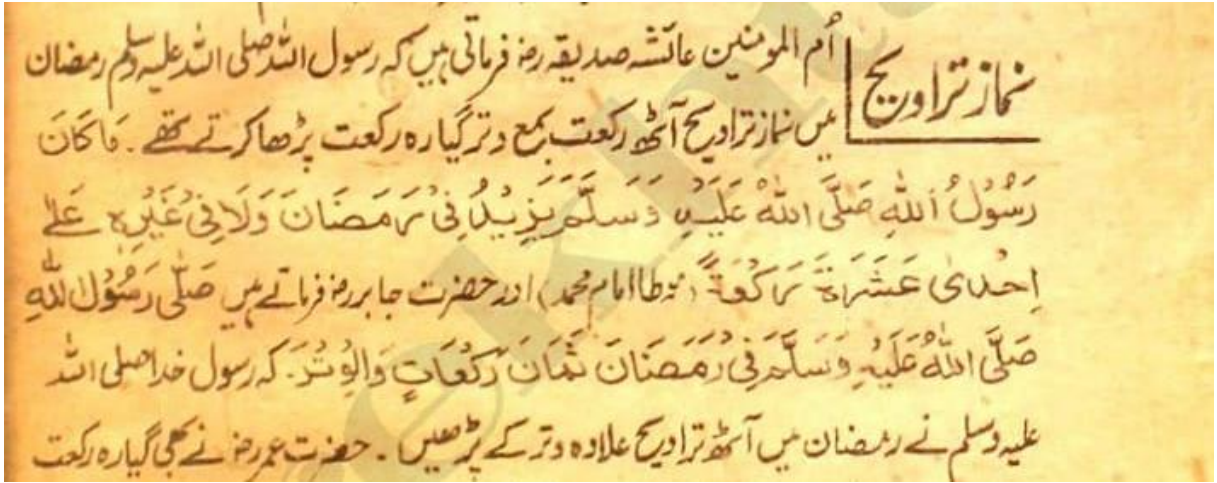 نماز تراویح
اُم المومنین عائشہ صدیقہ رضہ فرماتی ہیں کہ رسول اللہ صلی اللہ علیہ وسلم رمضان
میں نماز تراویح آٹھ رکعت بمع وتر گیارہ رکعت پڑھا کرتے تھے۔ مَا كَانَ
رَسُوْلُ اللهِ صَلَّى اللهُ عَلَيْهِ وَسَلَّمَ يَزِيْدُ فِىْ رَمَضَانَ وَلَا فِىْ غَيْرِهٖ عَلٰے
اِحْدٰى عَشَرَةَ رَكْعَةً (مؤطا امام محمد) اور حضرت جابر رضہ فرماتے ہیں صَلّٰى رَسُوْلُ اللّٰهِ
صَلَّى اللهُ عَلَيْهِ وَسَلَّمَ فِىْ رَمَضَانَ ثَمَانَ رَكَعَاتٍ وَالْوِتْرَ۔ کہ رسول خدا صلی اللہ
علیہ وسلم نے رمضان میں آٹھ تراویح علاوہ وتر کے پڑھیں۔ حضرت عمر رضہ نے بھی گیارہ رکعت